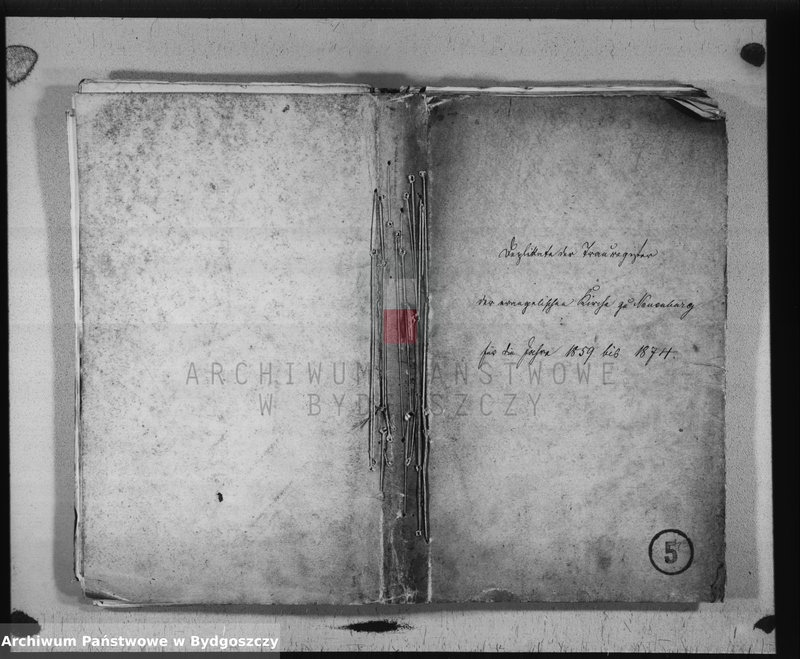 Duplikate der Trauregister
der evangelischen Kirche zu Neuenburg
für die Jahre 1859 bis 1874.
ARCHIWUM PAŃSTWOWE
W BYDGOSZCZY
5
Archiwum Państwowe w Bydgoszczy